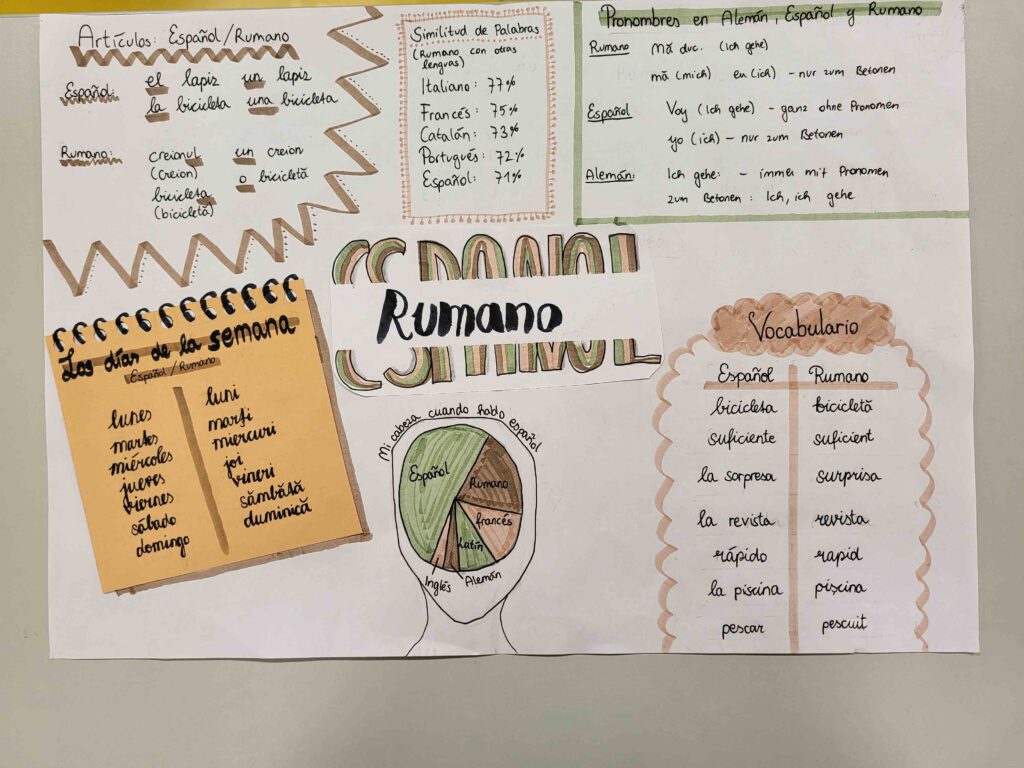 Artículos: Español/Rumano
Español: el lapiz un lapiz
la bicicleta una bicicleta
Rumano: creionul un creion
(creion)
bicicleta o bicicletă
(bicicletă)
Similitud de Palabras
(Rumano con otras
lenguas)
Italiano: 77%
Francés: 75%
Catalán: 73%
Português: 72%
Español: 71%
Pronombres en Alemán, Español y Rumano
Rumano Mă duc. (Ich gehe)
mă (mich) eu (ich) – nur zum Betonen
Español Voy (Ich gehe) – ganz ohne Pronomen
yo (ich) – nur zum Betonen
Alemán: Ich gehe: – immer mit Pronomen
zum Betonen: Ich, ich gehe
ESPAÑOL
Rumano
Los días de la semana
Español/Rumano
lunes luni
martes marți
miércoles miercuri
jueves joi
viernes vineri
sábado sâmbătă
domingo duminică
Mi cabeza cuando hablo español
Español
Rumano
francés
Latín
Inglés
Alemán
Vocabulario
Español Rumano
bicicleta bicicletă
suficiente suficient
la sorpresa surprisa
la revista revista
rápido rapid
la piscina piscina
pescar pescuit